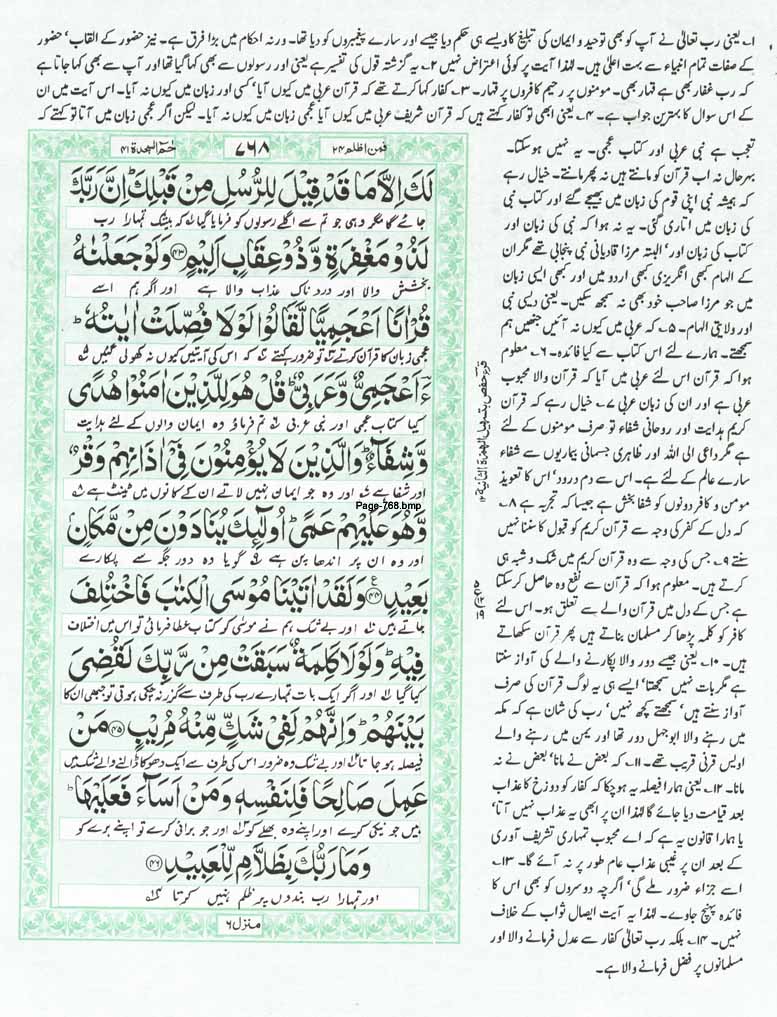 ۱۔ یعنی رب تعالیٰ نے آپ کو بھی توحید و ایمان کی تبلیغ کا ویسے ہی حکم دیا جیسے اور سارے پیغمبروں کو دیا تھا۔ ورنہ احکام میں بڑا فرق ہے۔ نیز حضور کے القاب' حضور
کے صفات تمام انبیاء سے بہت اعلیٰ ہیں۔ لہٰذا آیت پر کوئی اعتراض نہیں ۲۔ یہ گزشتہ قول کی تفسیر ہے یعنی اور رسولوں سے بھی کہا گیا تھا اور آپ سے بھی کہا جاتا ہے
کہ رب غفار بھی ہے قہار بھی۔ مومنوں پر رحیم کافروں پر قہار۔ ۳۔ کفار کہا کرتے تھے کہ قرآن عربی میں کیوں آیا' کسی اور زبان میں کیوں نہ آیا۔ اس آیت میں ان
کے اس سوال کا بہترین جواب ہے۔ ۴۔ یعنی ابھی تو کفار کہتے ہیں کہ قرآن شریف عربی میں کیوں آیا عجمی زبان میں کیوں نہ آیا۔ لیکن اگر عجمی زبان میں آتا تو کہتے کہ
تعجب ہے نبی عربی اور کتاب عجمی۔ یہ نہیں ہو سکتا۔
بہرحال نہ اب قرآن کو مانتے ہیں نہ پھر مانتے۔ خیال رہے
کہ ہمیشہ نبی اپنی قوم کی زبان میں بھیجے گئے اور کتاب نبی
کی زبان میں اتاری گئی۔ یہ نہ ہوا کہ نبی کی زبان اور
کتاب کی زبان اور' البتہ مرزا قادیانی نبی پنجابی تھے مگر ان
کے الہام کبھی انگریزی کبھی اردو میں اور کبھی ایسی زبان
میں جو مرزا صاحب خود بھی نہ سمجھ سکیں۔ یعنی دیسی نبی
اور ولایتی الہام۔ ۵۔ کہ عربی میں کیوں نہ آئیں جنہیں ہم
سمجھتے۔ ہمارے لئے اس کتاب سے کیا فائدہ۔ ۶۔ معلوم
ہوا کہ قرآن اس لئے عربی میں آیا کہ قرآن والا محبوب
عربی ہے اور ان کی زبان عربی ۷۔ خیال رہے کہ قرآن
کریم ہدایت اور روحانی شفاء تو صرف مومنوں کے لئے
ہے مگر داعی الی اللہ اور ظاہری جسمانی بیماریوں سے شفاء
سارے عالم کے لئے ہے۔ اس سے دم درود' اس کا تعویذ
مومن و کافر دونوں کو شفا بخش ہے جیسا کہ تجربہ ہے ۸۔
کہ دل کے کفر کی وجہ سے قرآن کریم کو قبول کا سننا نہیں
سنتے ۹۔ جس کی وجہ سے وہ قرآن کریم میں شک و شبہ ہی
کرتے ہیں۔ معلوم ہوا کہ قرآن سے نفع وہ حاصل کر سکتا
ہے جس کے دل میں قرآن والے سے تعلق ہو۔ اس لئے
کافر کو کلمہ پڑھا کر مسلمان بناتے ہیں پھر قرآن سکھاتے
ہیں۔ ۱۰۔ یعنی جیسے دور والا پکارنے والے کی آواز سنتا
ہے مگر بات نہیں سمجھتا' ایسے ہی یہ لوگ قرآن کی صرف
آواز سنتے ہیں' سمجھتے کچھ نہیں' رب کی شان ہے کہ مکہ
میں رہنے والا ابو جہل دور تھا اور یمن میں رہنے والے
اویس قرنی قریب تھے۔ ۱۱۔ کہ بعض نے مانا' بعض نے نہ
مانا۔ ۱۲۔ یعنی ہمارا فیصلہ یہ ہو چکا کہ کفار کو دوزخ کا عذاب
بعد قیامت دیا جائے گا لہٰذا ان پر ابھی یہ عذاب نہیں آتا'
یا ہمارا قانون یہ ہے کہ اے محبوب تمہاری تشریف آوری
کے بعد ان پر غیبی عذاب عام طور پر نہ آئے گا۔ ۱۳۔
اسے جزاء ضرور ملے گی' اگرچہ دوسروں کو بھی اس کا
فائدہ پہنچ جاوے۔ لہٰذا یہ آیت ایصال ثواب کے خلاف
نہیں۔ ۱۴۔ بلکہ رب تعالیٰ کفار سے عدل فرمانے والا اور
مسلمانوں پر فضل فرمانے والا ہے۔
فمن اظلم ۲۴ ۷۶۸ حٰم السجدۃ ۴۱
لَكَ اِلَّا مَا قَدْ قِيْلَ لِلرُّسُلِ مِنْ قَبْلِكَ اِنَّ رَبَّكَ
جائے گا مگر وہی جو تم سے اگلے رسولوں کو فرمایا گیا ۱ کہ بیشک تمہارا رب
لَذُوْ مَغْفِرَةٍ وَّذُوْ عِقَابٍ اَلِيْمٍ ﴿۴۳﴾ وَلَوْ جَعَلْنٰهُ
بخشش والا اور دردناک عذاب والا ہے اور اگر ہم اسے
قُرْاٰنًا اَعْجَمِيًّا لَّقَالُوْا لَوْلَا فُصِّلَتْ اٰيٰتُهٗ ؕ
عجمی زبان کا قرآن کرتے ۳ تو ضرور کہتے ۴ کہ اس کی آیتیں کیوں نہ کھولی گئیں ۵
ءَاَعْجَمِيٌّ وَّعَرَبِيٌّ ؕ قُلْ هُوَ لِلَّذِيْنَ اٰمَنُوْا هُدًى
کیا کتاب عجمی اور نبی عربی ۶ تم فرماؤ وہ ایمان والوں کے لئے ہدایت
وَّشِفَآءٌ ؕ وَالَّذِيْنَ لَا يُؤْمِنُوْنَ فِيْٓ اٰذَانِهِمْ وَقْرٌ
اور شفا ہے ۷ اور وہ جو ایمان نہیں لاتے ان کے کانوں میں ٹینٹ ہے ۸
Page-768.bmp
وَّهُوَ عَلَيْهِمْ عَمًى ؕ اُولٰٓئِكَ يُنَادَوْنَ مِنْ مَّكَانٍۭ
اور وہ ان پر اندھا پن ہے ۹ گویا وہ دور جگہ سے پکارے
بَعِيْدٍ ﴿۴۴﴾ وَلَقَدْ اٰتَيْنَا مُوْسَى الْكِتٰبَ فَاخْتُلِفَ
جاتے ہیں ۱۰ اور بے شک ہم نے موسیٰ کو کتاب عطا فرمائی تو اس میں اختلاف
فِيْهِ ؕ وَلَوْلَا كَلِمَةٌ سَبَقَتْ مِنْ رَّبِّكَ لَقُضِيَ
کیا گیا ۱۱ اور اگر ایک بات تمہارے رب کی طرف سے گزر نہ چکی ہوتی تو جبھی ان کا
بَيْنَهُمْ ؕ وَاِنَّهُمْ لَفِيْ شَكٍّ مِّنْهُ مُرِيْبٍ ﴿۴۵﴾ مَنْ
فیصلہ ہو جاتا ۱۲ اور بے شک وہ ضرور اس کی طرف سے ایک دھوکا ڈالنے والے شک میں
عَمِلَ صَالِحًا فَلِنَفْسِهٖ وَمَنْ اَسَآءَ فَعَلَيْهَا ؕ
ہیں جو نیکی کرے اور اپنے وہ بھلے کو ۱۳ اور جو برائی کرے تو اپنے برے کو
وَمَا رَبُّكَ بِظَلَّامٍ لِّلْعَبِيْدِ ﴿۴۶﴾
اور تمہارا رب بندوں پر ظلم نہیں کرتا ۱۴
منزل ۶